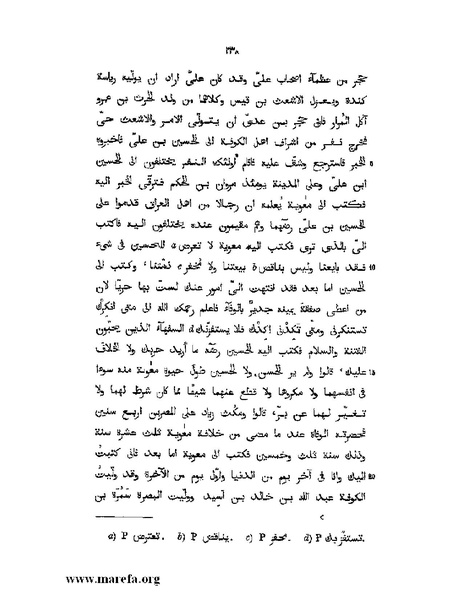 ٢٣٨
حجر من عظماء اصحاب علىّ وقد كان علىّ اراد ان يولّيه رياسة
كندة ويعزل الاشعث بن قيس وكلاهما من ولد الحرث بن عمرو
آكل المُرار فابى حجر بن عدىّ ان يتولّى الامر والاشعث حىّ
فخرج نفر من اشراف اهل الكوفة الى الحسين بن علىّ فاخبروه
الخبر فاسترجع وشقّ عليه فاقام اولئك النفر يختلفون الى الحسين 5
ابن علىّ وعلى المدينة يومئذ مروان بن الحكم فترقّى الخبر اليه
فكتب الى معوية يُعلمه ان رجالا من اهل العراق قدموا على
الحسين بن علىّ رضهما وهم مقيمون عنده يختلفون اليه فاكتب
الىّ بالذى ترى فكتب اليه معوية لا تعرض a للحسين فى شىء
فقد بايعنا وليس بناقض b بيعتنا ولا مُخفر c ذمّتنا، وكتب الى 10
الحسين اما بعد فقد انتهت الىّ امور عنك لستَ بها حريّا لان
من اعطى صفقة يمينه جديرٌ بالوفاء فاعلم رحمك الله انى متى أنكرك
تستنكرنى ومتى تكِدْنى أكِدْك فلا يستفزنّك d السفهاء الذين يحبّون
الفتنة والسلام فكتب اليه الحسين رضه ما أريد حربك ولا الخلاف
عليك، قالوا ولم ير الحسن ولا الحسين طول حيوة معوية منه سوءا 15
فى انفسهما ولا مكروها ولا قطع عنهما شيئا مما كان شرط لهما ولا
تغيّر لهما عن برّ، قالوا ومكث زياد على المصرين اربع سنين
فحضرته الوفاة عند ما مضى من خلافة معوية ثلث عشرة سنة
وذلك سنة ثلث وخمسين فكتب الى معوية اما بعد فانى كتبتُ
اليك وانا فى آخر يوم من الدنيا واوّل يوم من الآخرة وقد ولّيتُ 20
الكوفة عبد الله بن خالد بن أسيد وولّيت البصرة سَمُرة بن
a) P تعترض. b) P يناقض. c) P تحفر. d) P تستفزبك.
www.marefa.org